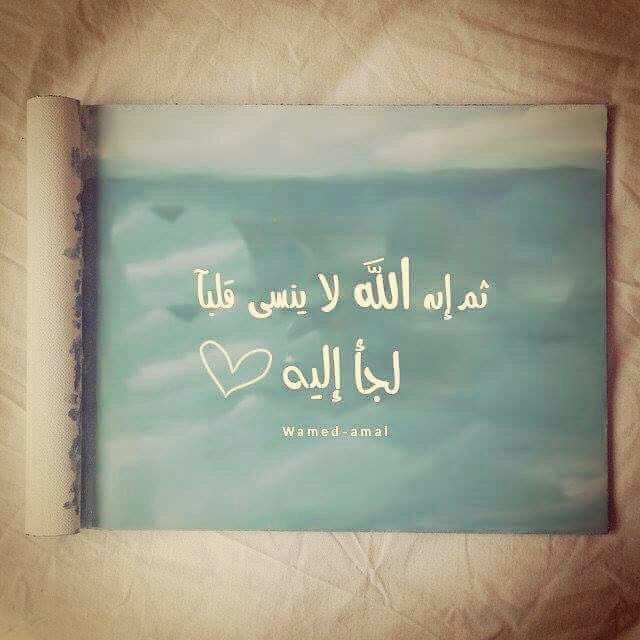 ثم إن اللَّه لا ينسى قلبآ
لجأ إلية
Wamed-amal